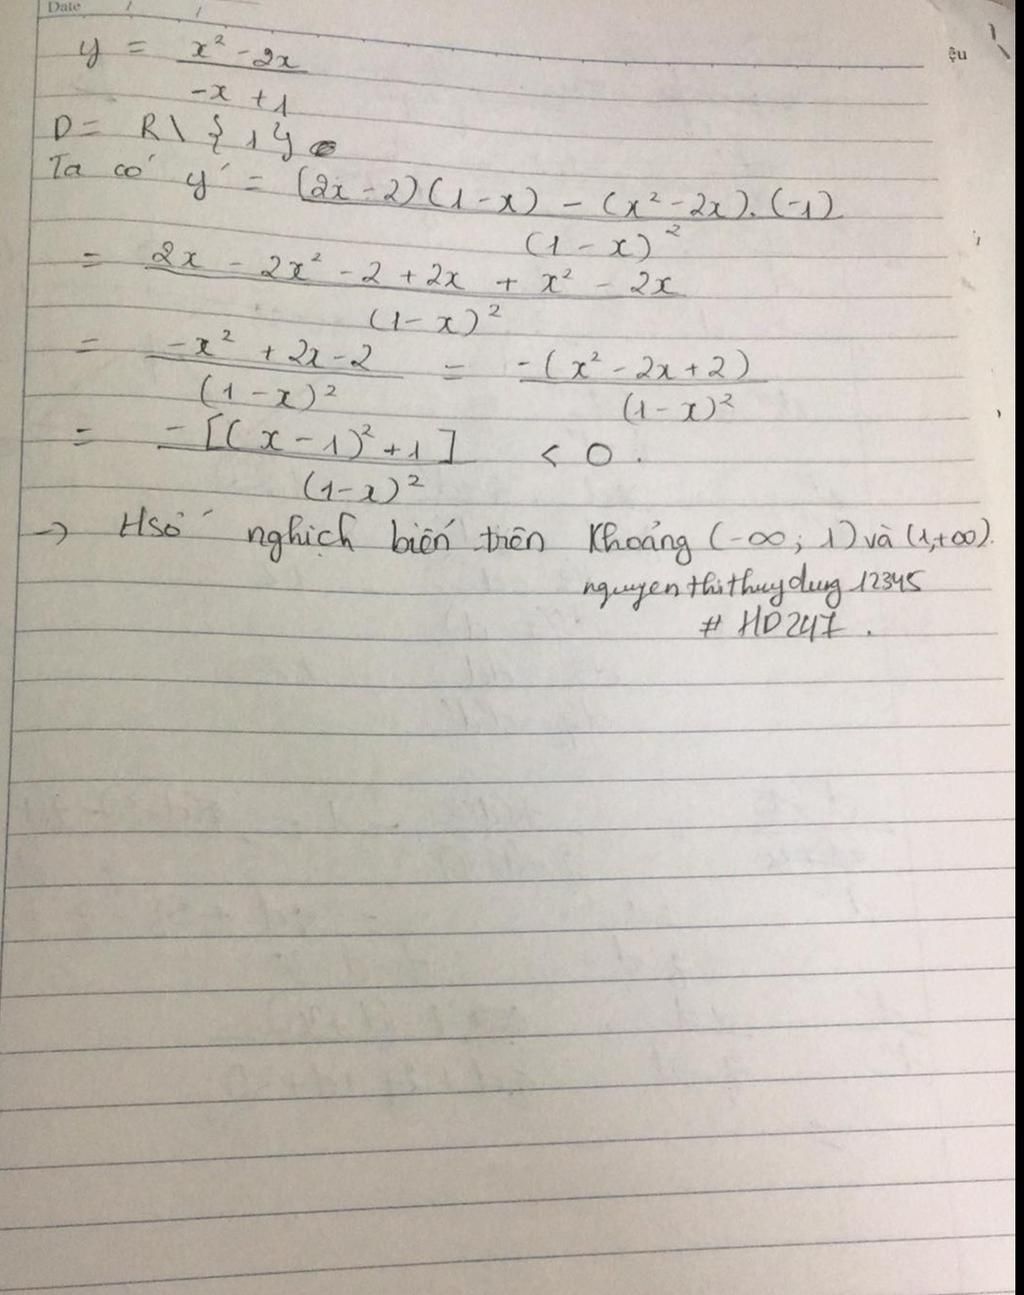 Date / /
ệu
y = x² - 2x / -x + 1
D = R \ {1}
Ta có y' = (2x - 2)(1 - x) - (x² - 2x).(-1) / (1 - x)²
= 2x - 2x² - 2 + 2x + x² - 2x / (1 - x)²
= -x² + 2x - 2 / (1 - x)² = -(x² - 2x + 2) / (1 - x)²
= -[(x - 1)² + 1] / (1 - x)² < 0.
→ Hsố nghịch biến trên khoảng (-∞; 1) và (1,+∞).
nguyenthithuydung12345
# HD247.